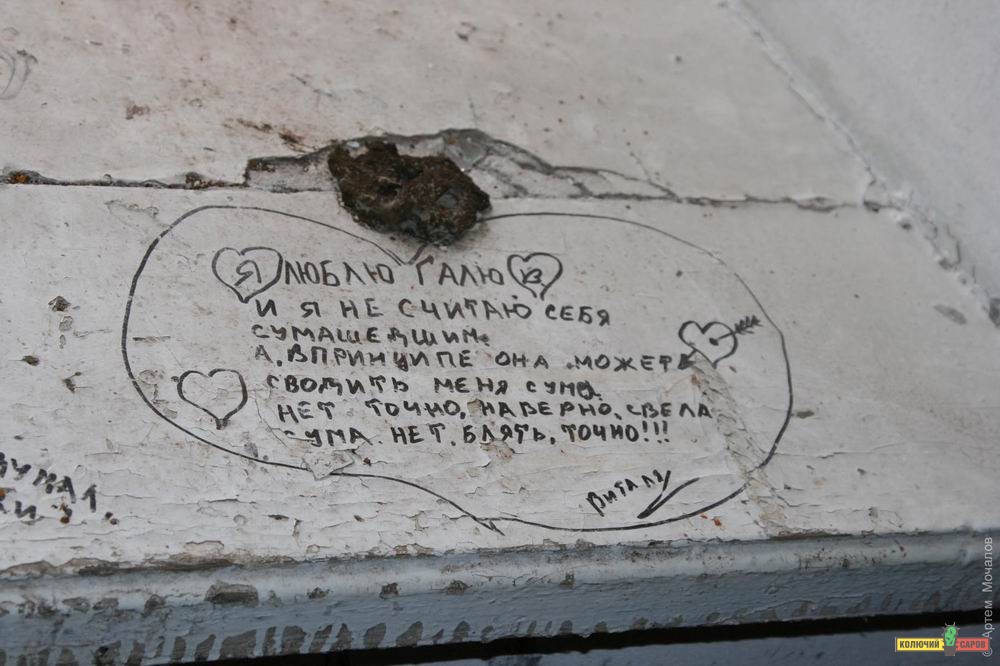 Я ЛЮБЛЮ ГАЛЮ
И Я НЕ СЧИТАЮ СЕБЯ
СУМАШЕДШИМ.
А, ВПРИНЦИПЕ ОНА МОЖЕТ
СВОДИТЬ МЕНЯ СУМА.
НЕТ ТОЧНО, НАВЕРНО, СВЕЛА
СУМА. НЕТ, БЛЯТЬ, ТОЧНО!!!
© Артем Мочалов
КОЛЮЧИЙ САРОВ